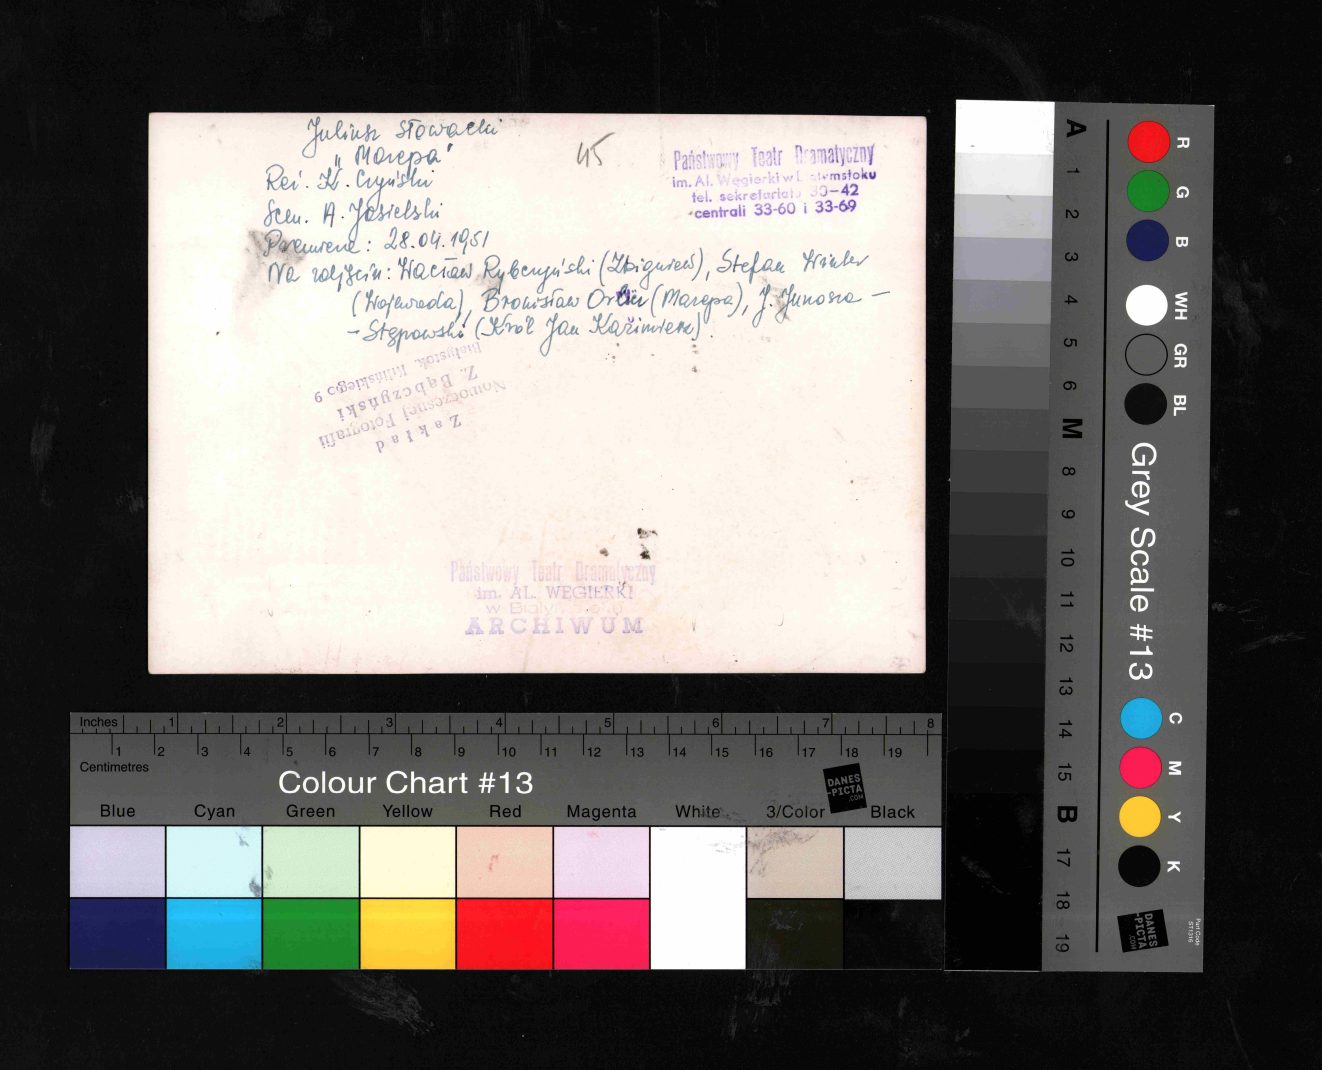 Juliusz Słowacki
"Mazepa"
Reż. K. Czyński
Scen. A. Jasielski
Premiera: 28.04.1951
Na zdjęciu: Wacław Rybczyński (Zbigniew), Stefan Winter
(Wojewoda), Bronisław Orlicz (Mazepa), J. Junosza -
- Stępowski (Król Jan Kazimierz)
45
Państwowy Teatr Dramatyczny
im. Al. Węgierki w Białymstoku
tel. sekretariatu 30-42
centrali 33-60 i 33-69
Zakład
Nowoczesnej Fotografii
Z. Bąbczyński
Białystok, Kilińskiego 9
Państwowy Teatr Dramatyczny
im. AL. WĘGIERKI
w Białymstoku
ARCHIWUM
Inches 1 2 3 4 5 6 7 8
1 2 3 4 5 6 7 8 9 10 11 12 13 14 15 16 17 18 19
Centimetres
Colour Chart #13
DANES
-PICTA
.COM
Blue Cyan Green Yellow Red Magenta White 3/Color Black
A 1 2 3 4 5 6 M 8 9 10 11 12 13 14 15 B 17 18 19
R G B WH GR BL
Grey Scale #13
C M Y K
DANES
-PICTA
.COM
Part Code
ST1316